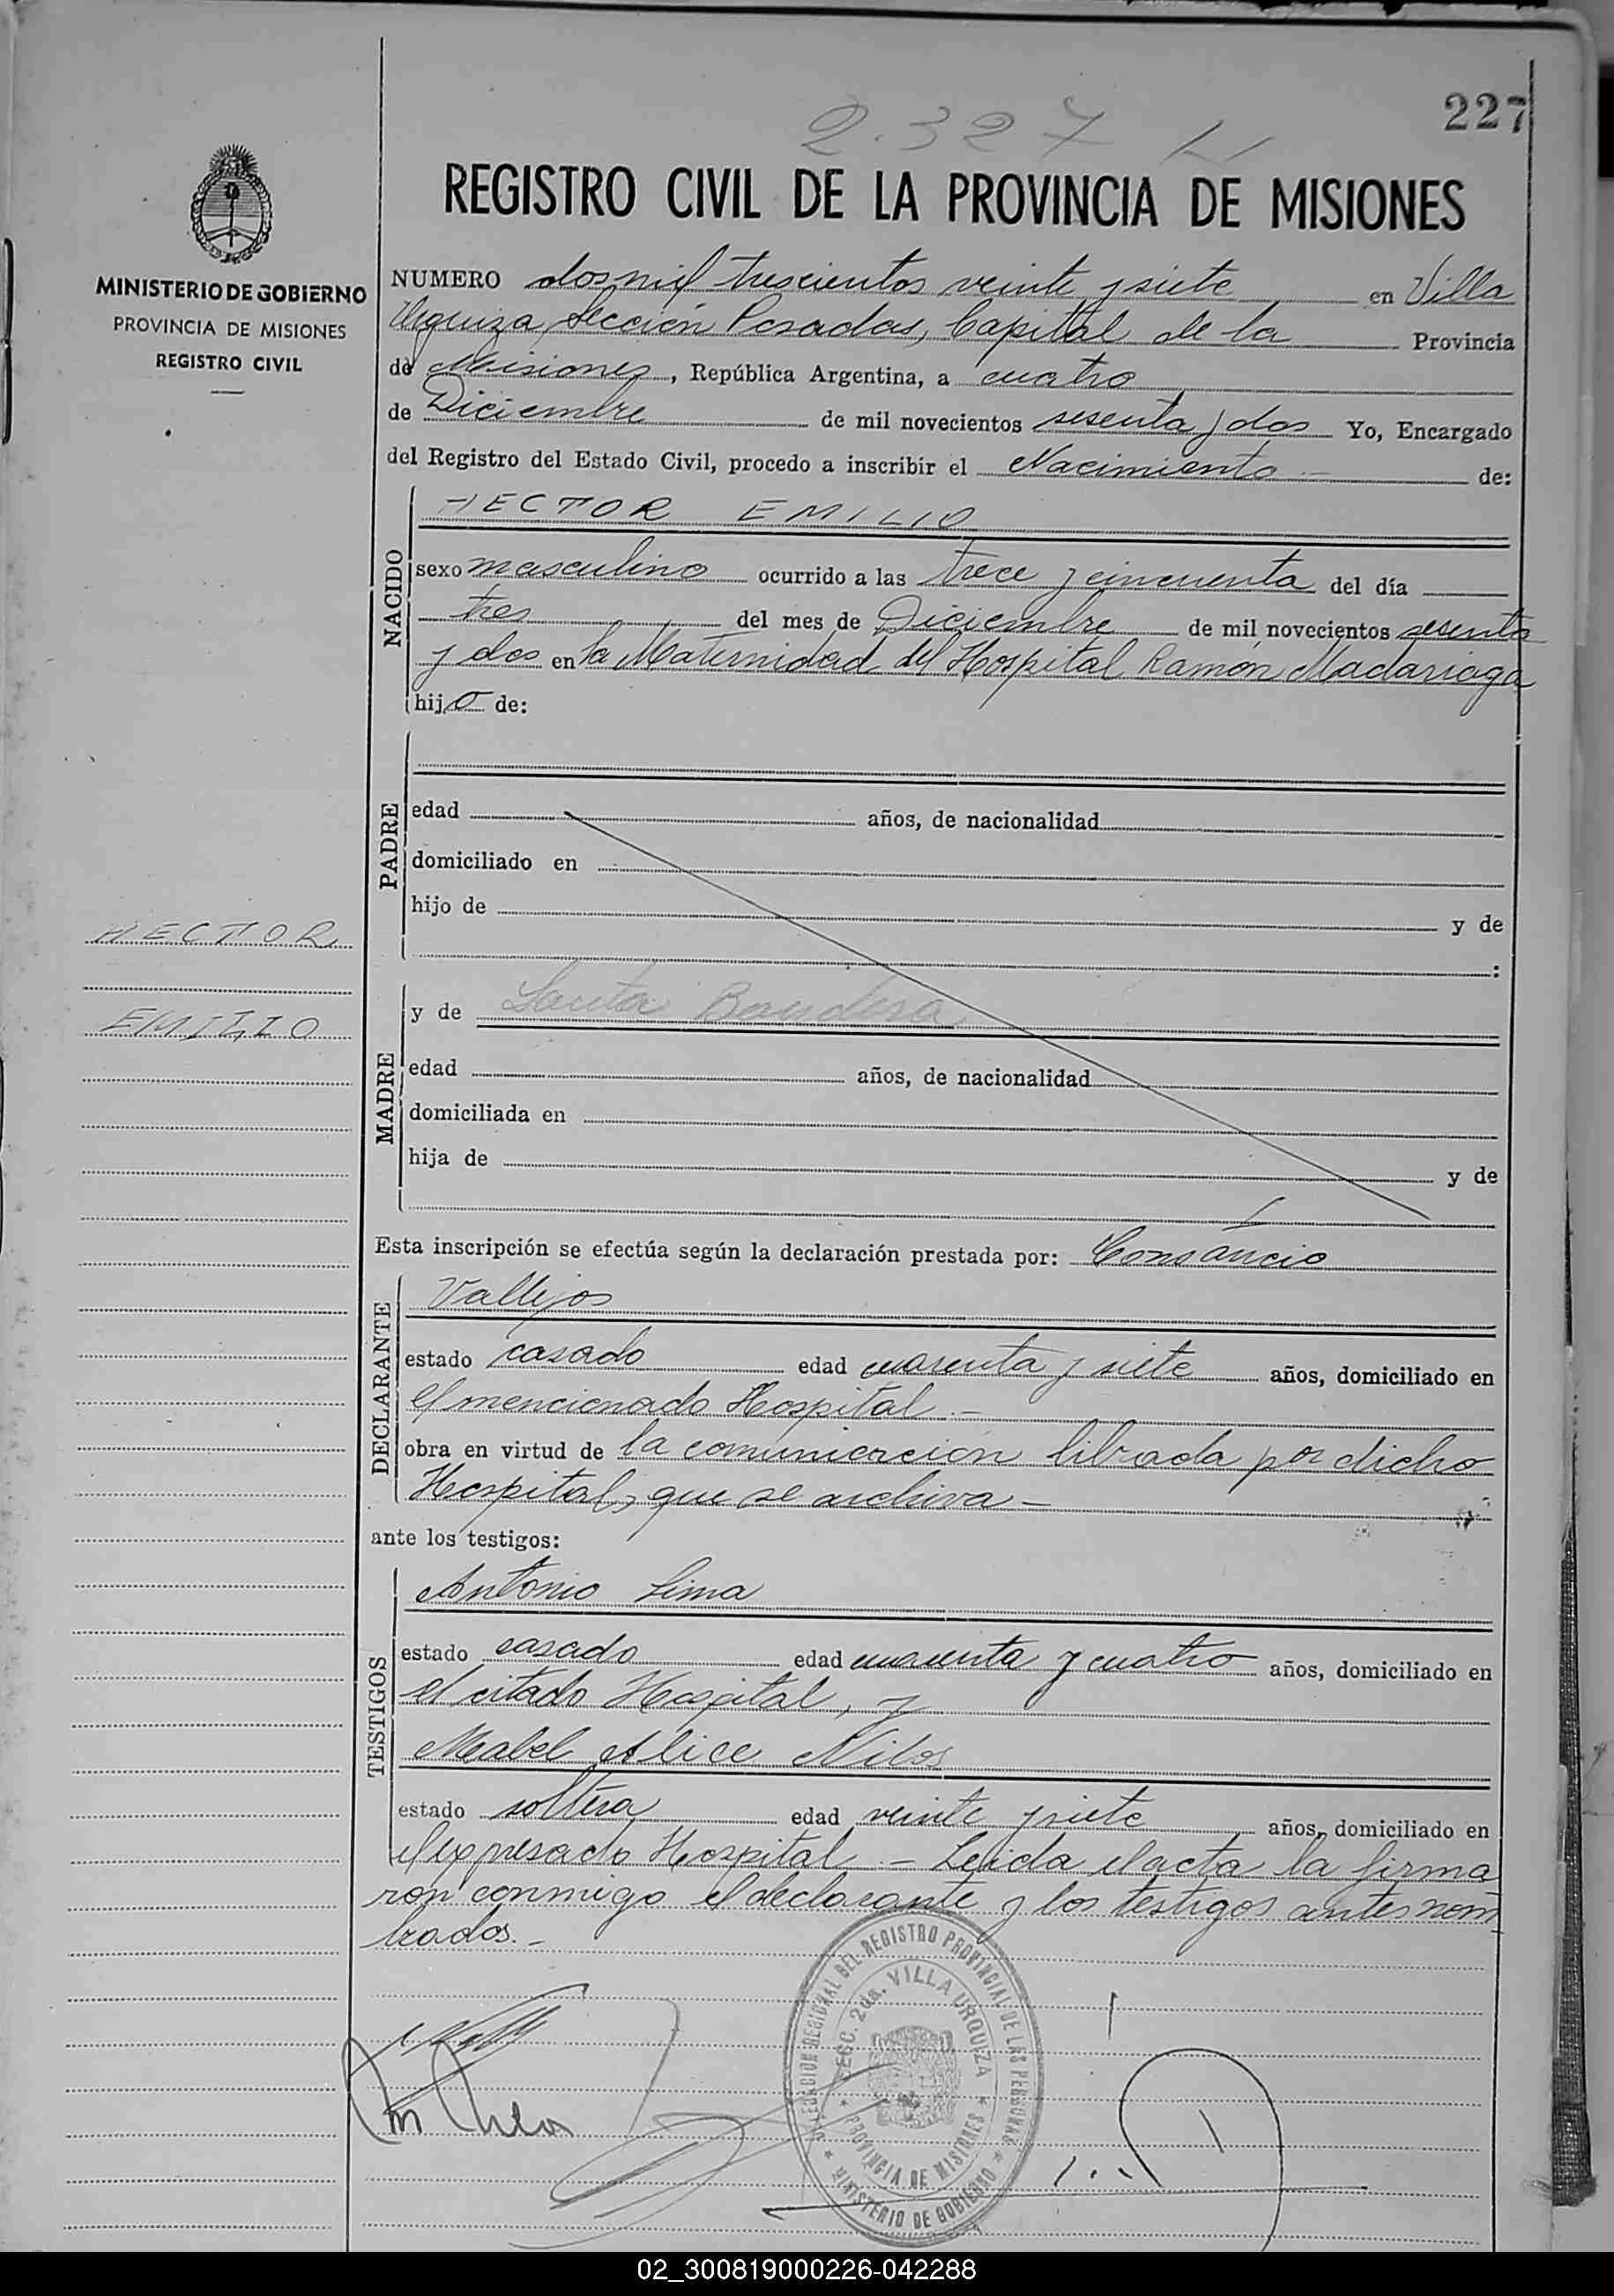 227
2.327
REGISTRO CIVIL DE LA PROVINCIA DE MISIONES
MINISTERIO DE GOBIERNO
PROVINCIA DE MISIONES
REGISTRO CIVIL
NUMERO dos mil trescientos veinte y siete en Villa
Urquiza, Sección Posadas, Capital de la Provincia
de Misiones, República Argentina, a cuatro
de Diciembre de mil novecientos sesenta y dos Yo, Encargado
del Registro del Estado Civil, procedo a inscribir el Nacimiento de:
NACIDO
HECTOR EMILIO
sexo masculino ocurrido a las trece y cincuenta del día
tres del mes de Diciembre de mil novecientos sesenta
y dos en la Maternidad del Hospital Ramón Madariaga
hijo de:
PADRE
edad años, de nacionalidad
domiciliado en
hijo de y de
:
HECTOR
EMILIO
MADRE
y de Santa Bandera
edad años, de nacionalidad
domiciliada en
hija de y de
Esta inscripción se efectúa según la declaración prestada por:
DECLARANTE
Vallejos
estado casado edad cuarenta y siete años, domiciliado en
el mencionado Hospital.-
obra en virtud de la comunicación librada por dicho
Hospital, que se archiva-
ante los testigos:
TESTIGOS
Antonio Lima
estado casado edad cuarenta y cuatro años, domiciliado en
el citado Hospital, y
Mabel Alice
estado soltera edad veinte y siete años, domiciliado en
el expresado Hospital.- Leida el acta la firma
ron conmigo el declarante y los testigos antes nom
brados.-
DELEGACION REGIONAL DEL REGISTRO PROVINCIAL DE LAS PERSONAS
SECC. 2da. VILLA URQUIZA
PROVINCIA DE MISIONES
MINISTERIO DE GOBIERNO
02_300819000226-042288